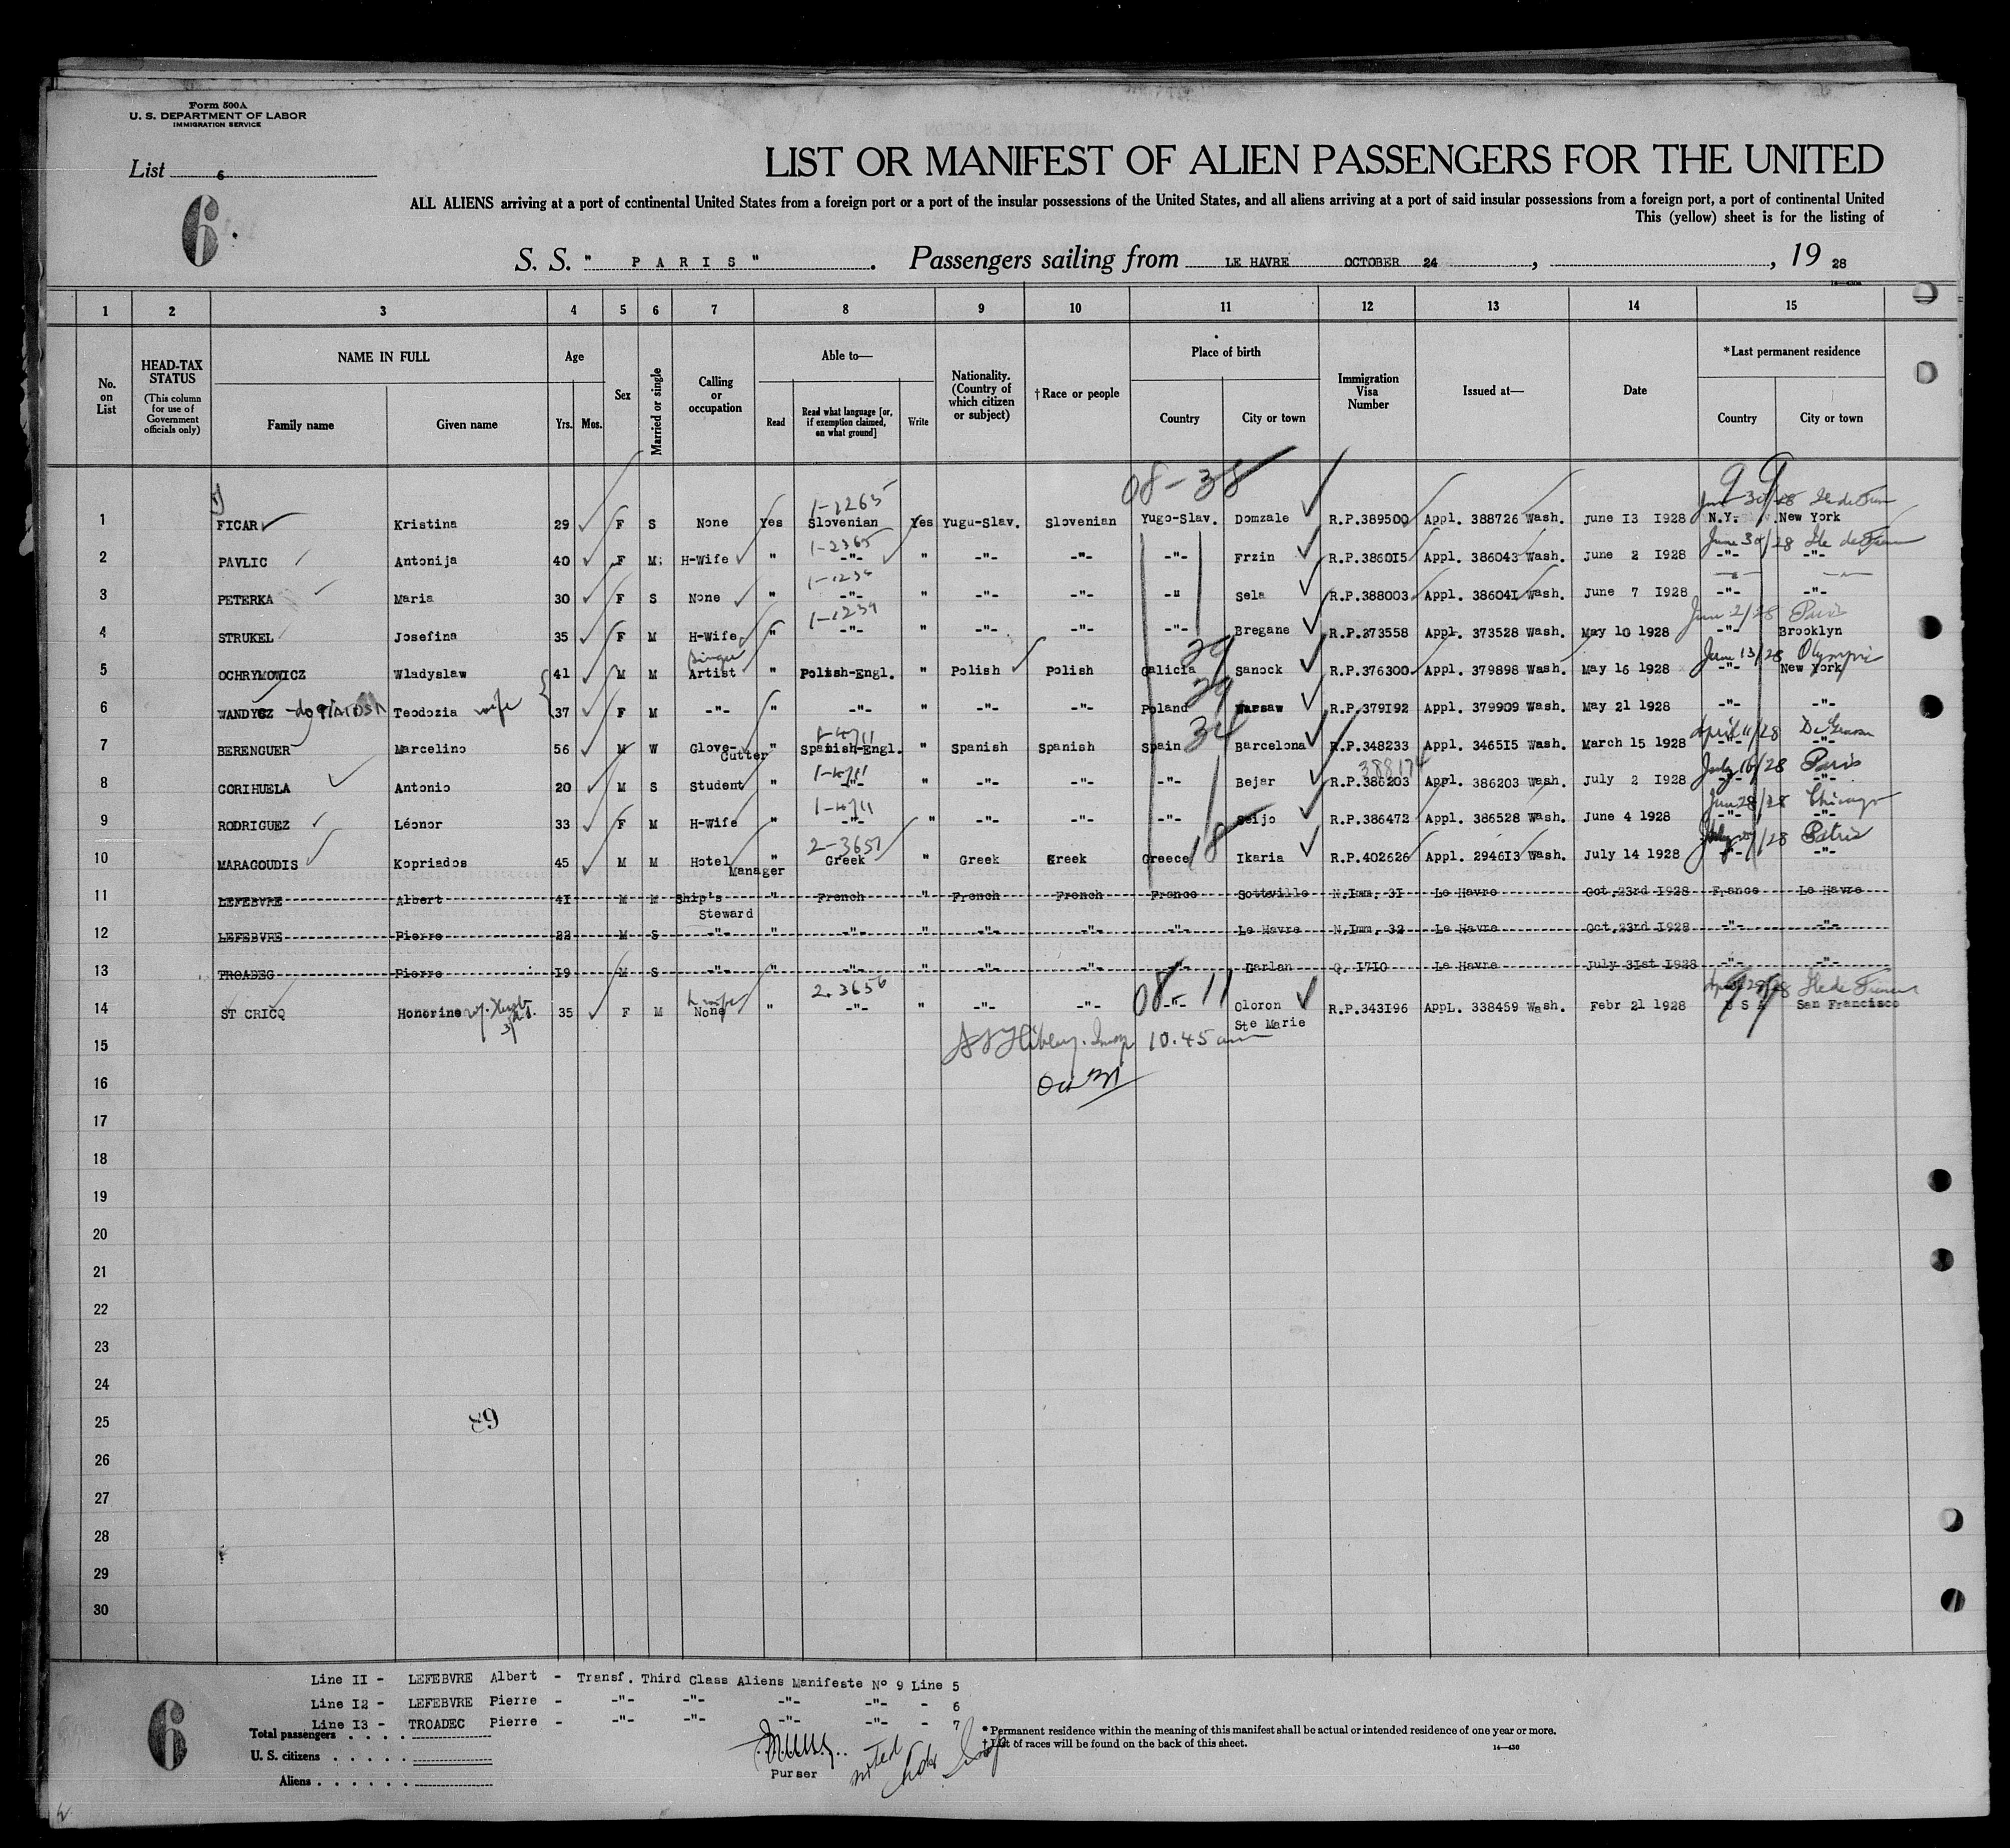 Form 500A
U. S. DEPARTMENT OF LABOR
IMMIGRATION SERVICE
List 6
LIST OR MANIFEST OF ALIEN PASSENGERS FOR THE UNITED
6
ALL ALIENS arriving at a port of continental United States from a foreign port or a port of the insular possessions of the United States, and all aliens arriving at a port of said insular possessions from a foreign port, a port of continental United
This (yellow) sheet is for the listing of
S. S. " P A R I S " . Passengers sailing from LE HAVRE OCTOBER 24 , , 19 28
1 2 3 4 5 6 7 8 9 10 11 12 13 14 15
No. on List
HEAD-TAX STATUS (This column for use of Government officials only)
NAME IN FULL Family name Given name
Age Yrs. Mos.
Sex
Married or single
Calling or occupation
Able to— Read Read what language [or, if exemption claimed, on what ground] Write
Nationality. (Country of which citizen or subject)
†Race or people
Place of birth Country City or town
Immigration Visa Number
Issued at—
Date
*Last permanent residence Country City or town
08-38 99
1-2265 June 30/28 Ile de Fran
1 FICAR Kristina 29 F S None Yes Slovenian Yes Yugu-Slav. Slovenian Yugo-Slav. Domzale R.P.389500 Appl. 388726 Wash. June I3 I928 N.Y. New York
1-2365 June 30/28 Ile de Fran
2 PAVLIC Antonija 40 F M. H-Wife " -"- " -"- -"- -"- Frzin R.P.3860I5 Appl. 386043 Wash. June 2 I928 -"- -"-
1-1234
3 PETERKA Maria 30 F S None " -"- " -"- -"- -" Sela R.P.388003 Appl. 38604I Wash. June 7 I928 -"- -"-
1-1239 June 2/28 Paris
4 STRUKEL Josefina 35 F M H-Wife " -"- " -"- -"- -"- Bregane R.P.373558 Appl. 373528 Wash. May I0 I928 -"- Brooklyn
Singer 29 June 13/28 Olympic
5 OCHRYMOWICZ Wladyslaw 41 M M Artist " Polish-Engl. " Polish Polish Galicia Sanock R.P.376300 Appl. 379898 Wash. May I6 I928 -"- New York
29
6 WANDYCZ Teodozia wife 37 F M -"- " -"- " -"- -"- Poland Warsaw R.P.379I92 Appl. 379909 Wash. May 2I I928 -"- -"-
1-4711 34 April 11/28 De Grasse
7 BERENGUER Marcelino 56 M W Glove-Cutter " Spanish-Engl. " Spanish Spanish Spain Barcelona R.P.348233 Appl. 3465I5 Wash. March I5 I928 -"- -"-
1-4711 388174 July 16/28 Paris
8 CORIHUELA Antonio 20 M S Student " -"- " -"- -"- -"- Bejar R.P.386203 Appl. 386203 Wash. July 2 I928 -"- -"-
1-4711 June 28/28 Chicago
9 RODRIGUEZ Léonor 33 F M H-Wife " -"- " -"- -"- -"- Seijo R.P.386472 Appl. 386528 Wash. June 4 I928 -"- -"-
2-3657 18 /28 Patris
10 MARAGOUDIS Kopriados 45 M M Hotel Manager " Greek " Greek Greek Greece Ikaria R.P.402626 Appl. 2946I3 Wash. July I4 I928 -"- -"-
11 LEFEBVRE Albert 4I M M Ship's Steward " French " French French France Sotteville N.Imm. 3I Le Havre Oct.23rd I928 France Le Havre
12 LEFEBVRE Pierre 22 M S -"- " -"- " -"- -"- -"- Le Havre N.Imm. 32 Le Havre Oct.23rd I928 -"- -"-
13 TROADEC Pierre I9 M S -"- " -"- " -"- -"- -"- Garlan Q. I7I0 Le Havre July 3Ist I928 -"- -"-
2.3656 08 11 99 /28 Ile de France
14 ST CRICQ Honorine 35 F M h wife None " -"- " -"- -"- -"- Oloron Ste Marie R.P.343I96 AppL. 338459 Wash. Febr 2I I928 U S A San Francisco
15 Insp. 10.45 am
16 Oct 31
17
18
19
20
21
22
23
24
25 89
26
27
28
29
30
Line II - LEFEBVRE Albert - Transf. Third Class Aliens Manifeste No 9 Line 5
Line I2 - LEFEBVRE Pierre - -"- -"- -"- -"- - 6
Line I3 - TROADEC Pierre - -"- -"- -"- -"- - 7
6
Total passengers . . . .
U. S. citizens . . . . .
Aliens . . . . . .
Purser
noted
Insp
* Permanent residence within the meaning of this manifest shall be actual or intended residence of one year or more.
† List of races will be found on the back of this sheet.
14—430